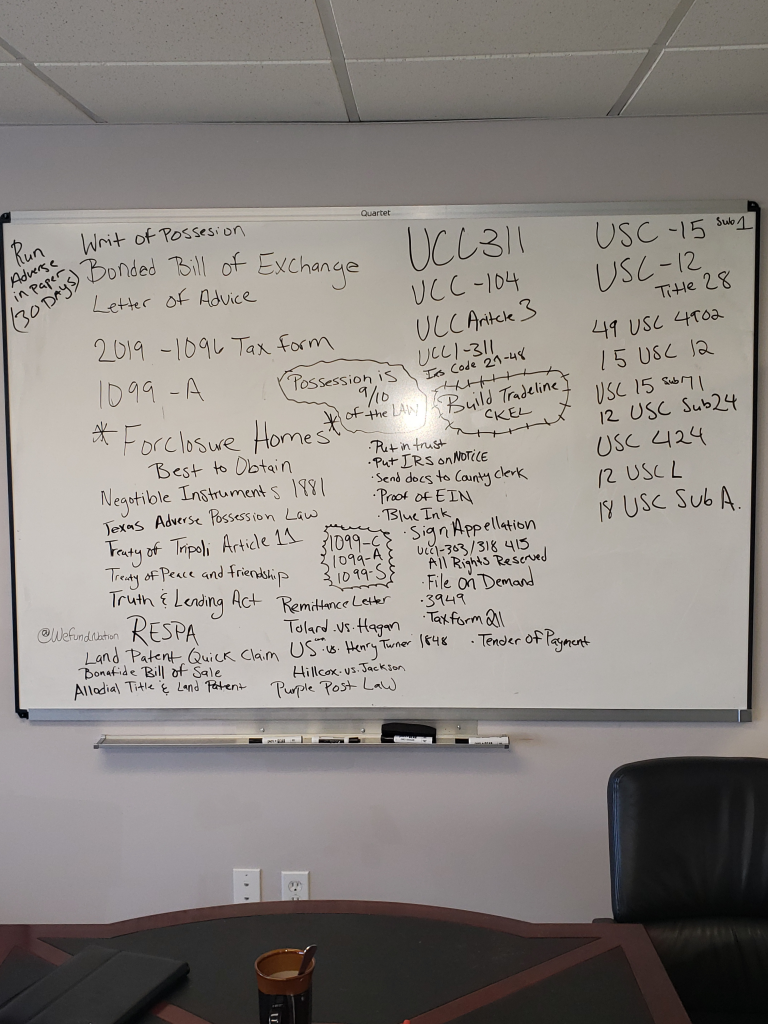 Quartet
Run
Adverse
in Paper
(30 Days)
Writ of Possesion
Bonded Bill of Exchange
Letter of Advice
2019 -1096 Tax form
1099 -A
Possession is
9/10
of the LAW
* Forclosure Homes *
Best to Obtain
Negotible Instruments 1881
Texas Adverse Possession Law
Treaty of Tripoli Article 11
Treaty of Peace and friendship
Truth & Lending Act
@WefundNation
RESPA
Land Patent Quick Claim
Bonafide Bill of Sale
Allodial Title & Land Patent
1099-C
1099-A
1099-S
Remittance Letter
Tolard .vs. Hagan
US .vs. Henry Turner 1848
Hillcox .vs. Jackson
Purple Post Law
UCC 311
UCC -104
UCC Aritcle 3
UCC1-311
Irs Code 27-48
Build Tradeline
CKEL
·Put in trust
·Put IRS on NOTICE
·Send docs to County clerk
·Proof of EIN
·Blue Ink
·Sign Appellation
UCC1-303/318 415
All Rights Reserved
·File on Demand
·3949
·Tax form 211
·Tender of Payment
USC -15 Sub 1
USC -12
Title 28
49 USC 4902
15 USC 12
USC 15 Sub 71
12 USC Sub 24
USC 424
12 USC L
18 USC Sub A.